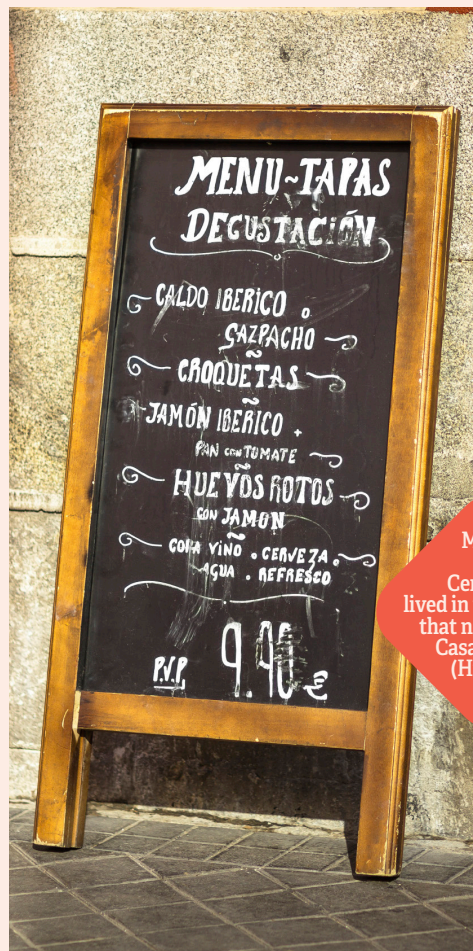 MENU~TAPAS
DEGUSTACIÓN
CALDO IBERICO o
GAZPACHO
CROQUETAS
JAMÓN IBERICO +
PAN CON TOMATE
HUEVOS ROTOS
CON JAMON
COPA VINO . CERVEZA .
AGUA . REFRESCO
P.V.P. 9.90 €
lived in
that n
Casa
(H